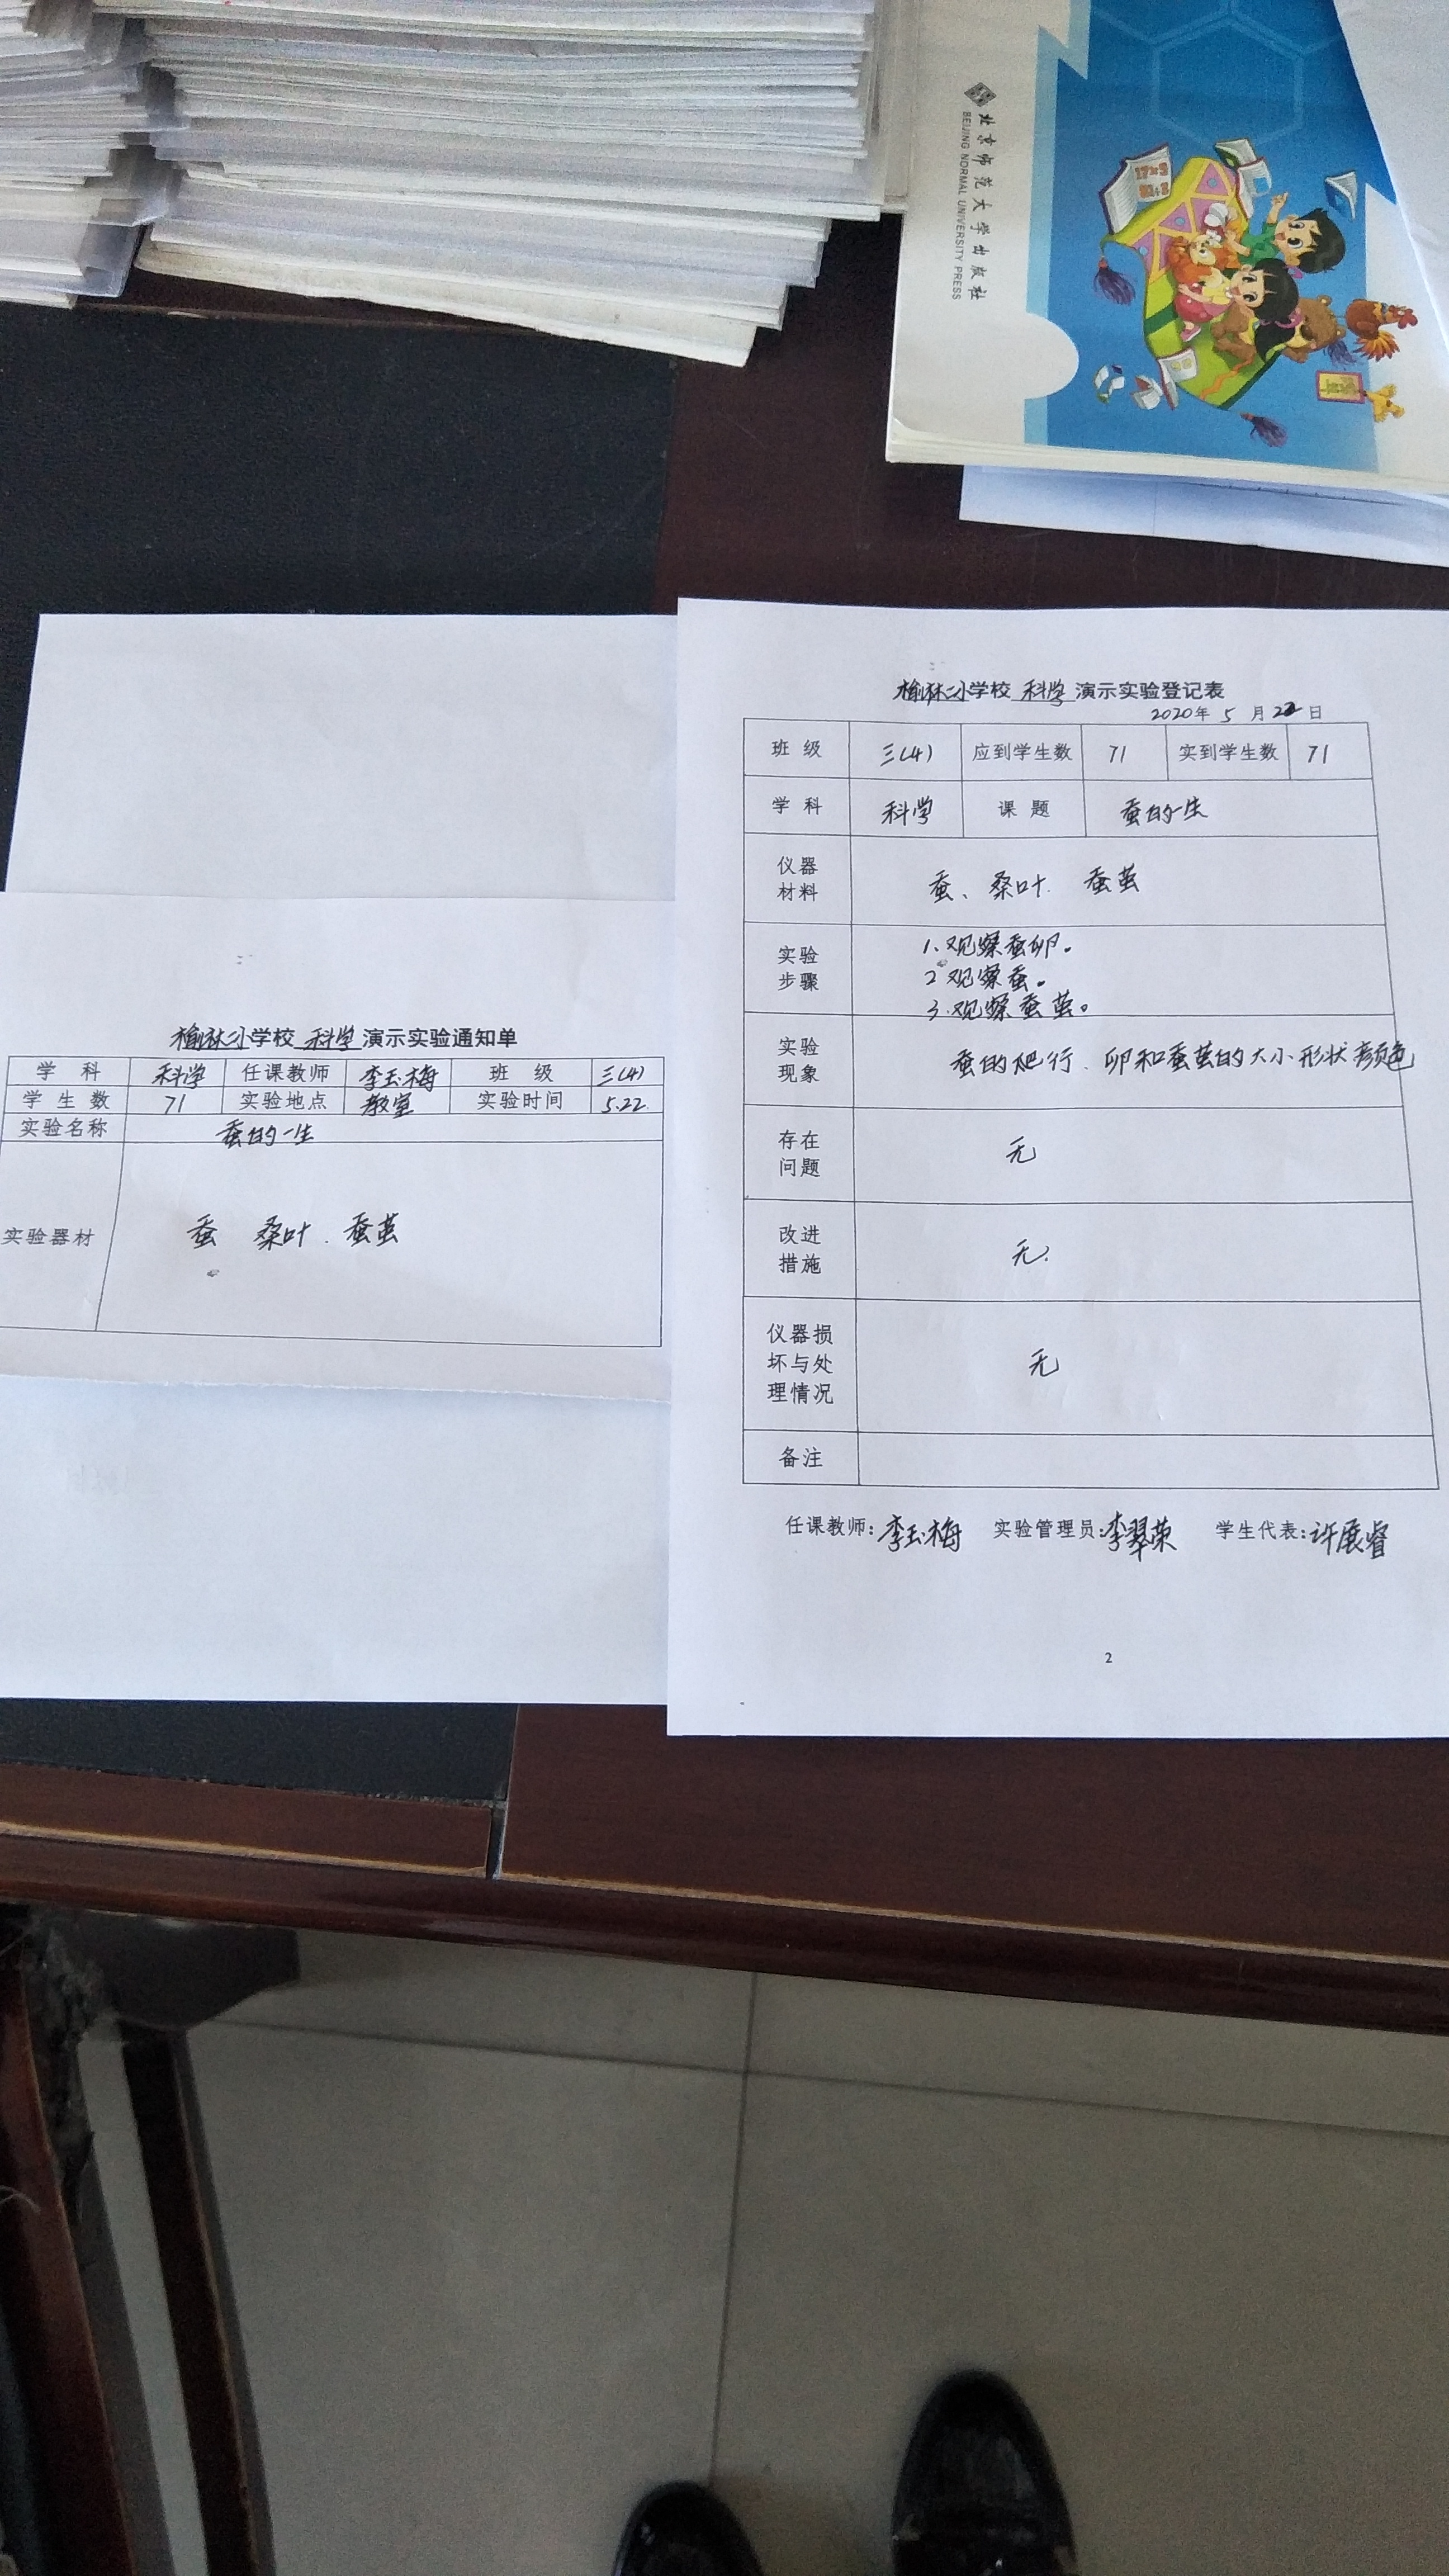 北京师范大学出版社
BEIJING NORMAL UNIVERSITY PRESS
榆林二小学校 科学 演示实验通知单
学科 科学 任课教师 李玉梅 班级 三(4)
学生数 71 实验地点 教室 实验时间 5.22.
实验名称 蚕的一生
实验器材 蚕 桑叶. 蚕茧
榆林二小学校 科学 演示实验登记表
2020年 5 月 22 日
班级 三(4) 应到学生数 71 实到学生数 71
学科 科学 课题 蚕的一生
仪器
材料
蚕、桑叶. 蚕茧
实验
步骤
1.观察蚕卵。
2 观察蚕。
3.观察蚕茧。
实验
现象
蚕的爬行、卵和蚕茧的大小形状颜色
存在
问题
无
改进
措施
无.
仪器损
坏与处
理情况
无
备注
任课教师:李玉梅 实验管理员:李翠荣 学生代表:许展睿
2